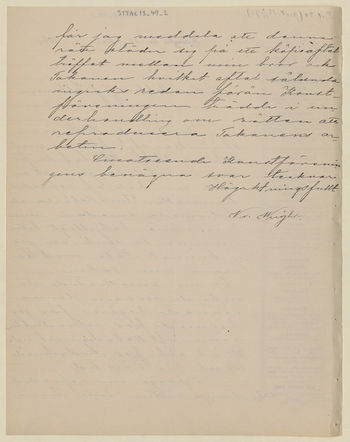 SIYAC15.49_2
får jag meddela att denna
rätt stöder sig på ett köpeaftal
träffat mellan min bror och
Takanen hvilket aftal sålunda
ingicks redan förrän Konst
föreningen trädde i un
derhandling om rätten att
reproducera Takanens ar
beten.
Emotseende Konstförenin
gens benägna svar tecknar
Högaktningsfullt
V. v. Wright.